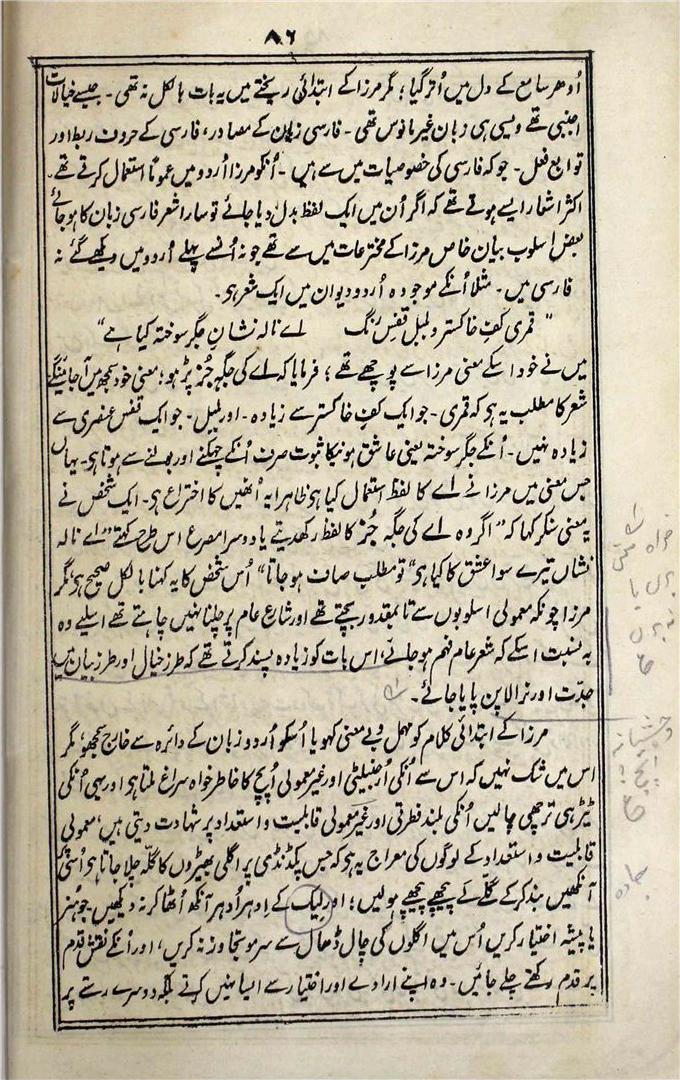 ۸۶
اُدھر سامع کے دل میں اُتر گیا؛ مگر مرزا کے ابتدائی ریختے میں یہ بات بالکل نہ تھی۔ جیسے خیالات
اجنبی تھے ویسی ہی زبان غیر مانوس تھی۔ فارسی زبان کے مصادر، فارسی کے حروفِ ربط اور
توابعِ فعل۔ جو کہ فارسی کی خصوصیات میں سے ہیں۔ اُنکو مرزا اُردو میں عموماً استعمال کرتے تھے۔
اکثر اشعار ایسے ہوتے تھے کہ اگر اُن میں ایک لفظ بدل دیا جائے تو سارا شعر فارسی زبان کا ہو جائے
بعض اسلوبِ بیان خاص مرزا کے مخترعات میں سے تھے جو نہ اُنسے پہلے اُردو میں دیکھے گئے نہ
فارسی میں۔ مثلاً اُنکے موجودہ اُردو دیوان میں ایک شعر ہو۔
"قمری کفِ خاکستر و بلبل قفسِ رنگ اے نالہ نشانِ جگر سوختہ کیا ہے"
میں نے خود اسکے معنی مرزا سے پوچھے تھے؛ فرمایا کہ اے کی جگہ جُز پڑھو؛ معنی خود سمجھ میں آجاینگے
شعر کا مطلب یہ ہو کہ قمری۔ جو ایک کفِ خاکستر سے زیادہ۔ اور بلبل۔ جو ایک قفسِ عنصری سے
زیادہ نہیں۔ اُنکے جگر سوختہ یعنی عاشق ہونیکا ثبوت صرف اُنکے چہکنے اور بولنے سے ہوتا ہو۔ یہاں
جس معنی میں مرزا نے اے کا لفظ استعمال کیا ہو ظاہراً یہ اُنھیں کا اختراع ہو۔ ایک شخص نے
یہ معنی سنکر کہا کہ "اگر وہ اے کی جگہ جُز کا لفظ رکھدیتے یا دوسرا مصرع اس طرح کہتے "اے نالہ
نشاں تیرے سوا عشق کا کیا ہو" تو مطلب صاف ہو جاتا" اُس شخص کا یہ کہنا بالکل صحیح ہو؛ مگر
مرزا چونکہ معمولی اسلوبوں سے تا بمقدور بچتے تھے اور شارعِ عام پر چلنا نہیں چاہتے تھے اسلیے وہ
بہ نسبت اسکے کہ شعر عام فہم ہو جائے، اس بات کو زیادہ پسند کرتے تھے کہ طرزِ خیال اور طرزِ بیان میں
جدّت اور نرالا پن پایا جائے۔
مرزا کے ابتدائی کلام کو مہمل و بے معنی کہو یا اُسکو اُردو زبان کے دائرہ سے خارج سمجھو؛ مگر
اس میں شک نہیں کہ اس سے اُنکی اُرجنیلٹی اور غیر معمولی اُپچ کا خاطر خواہ سراغ ملتا ہو اور یہی اُنکی
ٹیڑھی ترچھی چالیں اُنکی بلند فطرتی اور غیر معمولی قابلیت و استعداد پر شہادت دیتی ہیں، معمولی
قابلیت و استعداد کے لوگوں کی معراج یہ ہو کہ جس پگڈنڈی پر اگلی بھیڑوں کا گلّہ چلا جاتا ہو اُسی پر
آنکھیں بند کرکے گلّے کے پیچھے پیچھے ہولیں؛ اور لیک کے اِدھر اُدھر آنکھ اُٹھا کر نہ دیکھیں۔ جو ہنر
یا پیشہ اختیار کریں اُس میں اگلوں کی چال ڈھال سے سرمو تجاوز نہ کریں، اور اُنکے نقشِ قدم
پر قدم رکھتے چلے جائیں۔ وہ اپنے ارادے اور اختیار سے ایسا نہیں کرتے بلکہ دوسرے رستے پر